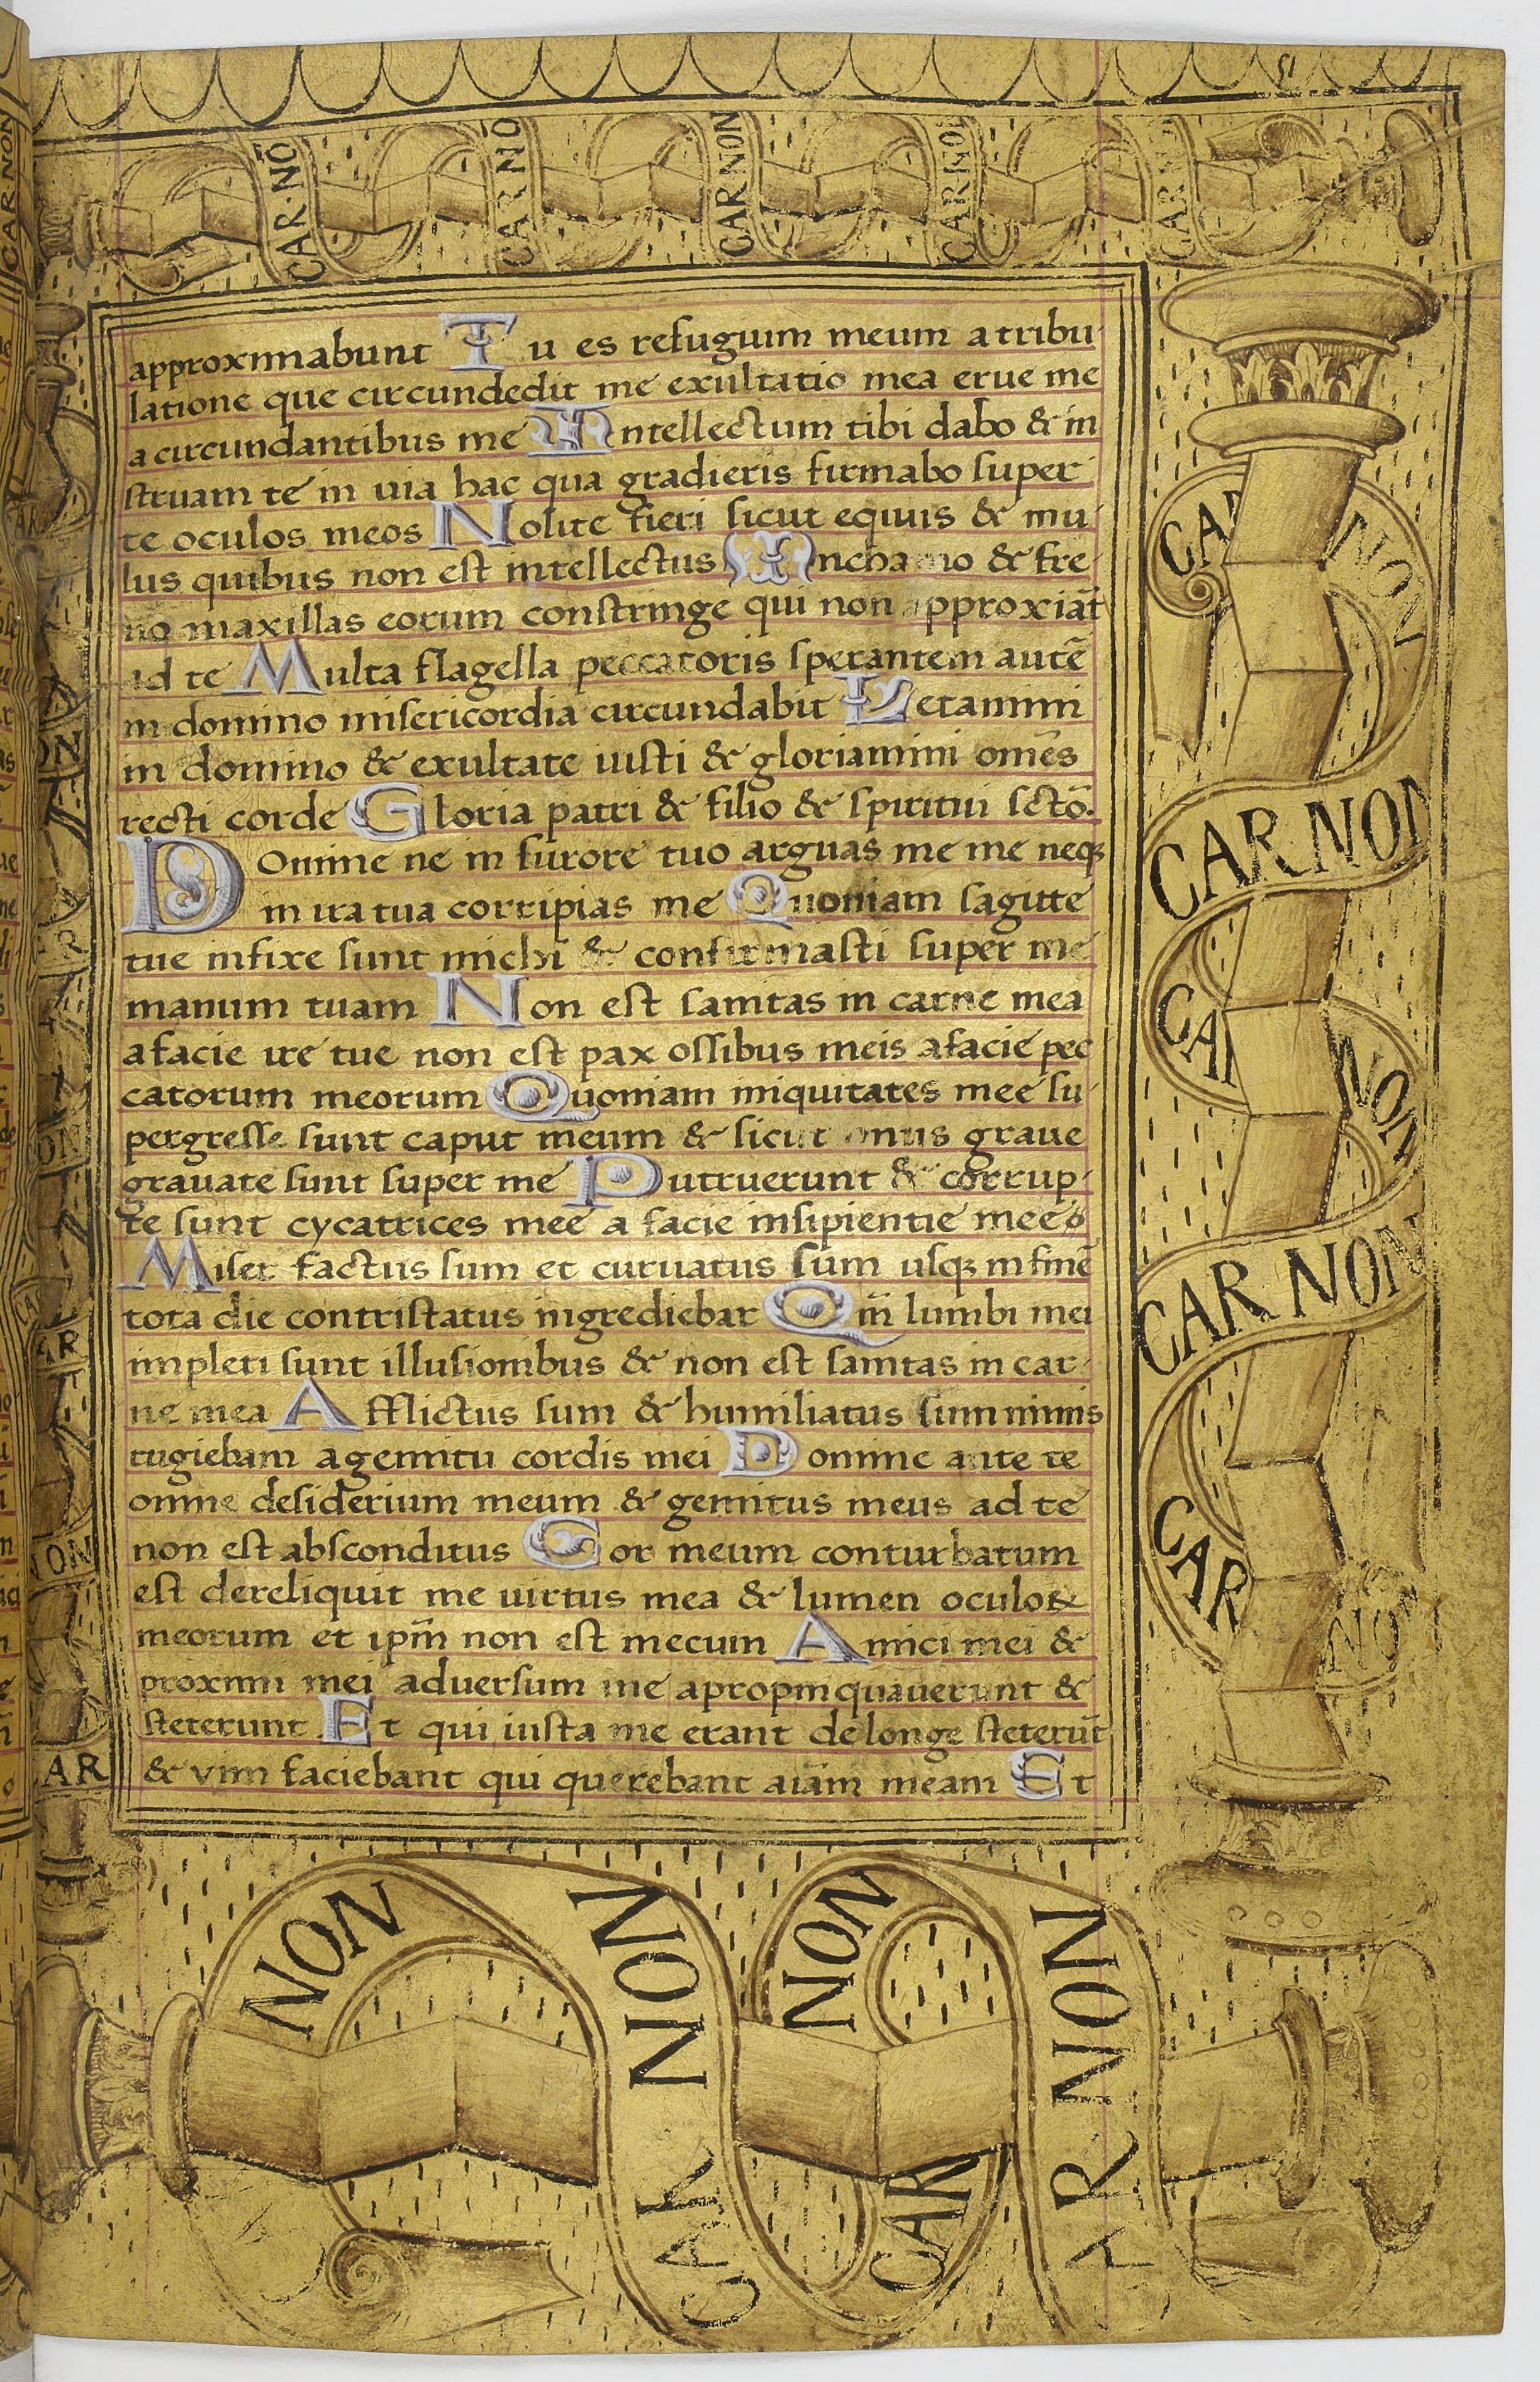 CAR·NÕ CAR NÕ CAR NON CAR NON CAR
approximabunt Tu es refugium meum a tribu
latione que circundedit me exultatio mea erue me
a circundantibus me Intellectum tibi dabo & in
struam te in uia hac qua gradieris firmabo super
te oculos meos Nolite fieri sicut equus & mu
lus quibus non est intellectus In chamo & fre
no maxillas eorum constringe qui non approxiāt
ad te Multa flagella peccatoris sperantem autē
in domino misericordia circundabit Letamini
in domino & exultate iusti & gloriamini om̄es
recti corde Gloria patri & filio & spiritui sctō.
Domine ne in furore tuo arguas me me neqꝫ
in ira tua corripias me Quoniam sagitte
tue infixe sunt michi & confirmasti super me
manum tuam Non est sanitas in carne mea
a facie ire tue non est pax ossibus meis a facie pec
catorum meorum Quoniam iniquitates mee su
pergresse sunt caput meum & sicut onus graue
grauate sunt super me Putruerunt & corrup
te sunt cycatrices mee a facie insipientie mee
Miser factus sum et curuatus sum usqꝫ in finē
tota die contristatus ingrediebar Qm̄ lumbi mei
impleti sunt illusionibus & non est sanitas in car
ne mea Afflictus sum & humiliatus sum nimis
rugiebam a gemitu cordis mei Domine ante te
omne desiderium meum & gemitus meus ad te
non est absconditus Cor meum conturbatum
est dereliquit me uirtus mea & lumen oculoꝝ
meorum et ipm̄ non est mecum Amici mei &
proximi mei aduersum me apropinquauerunt &
steterunt Et qui iusta me erant de longe steterūt
& vim faciebant qui querebant aīam meam Et
CAR NON
CAR NON
CAR NON
CAR NON
CAR NON
NON CAR NON NON CAR CAR NON